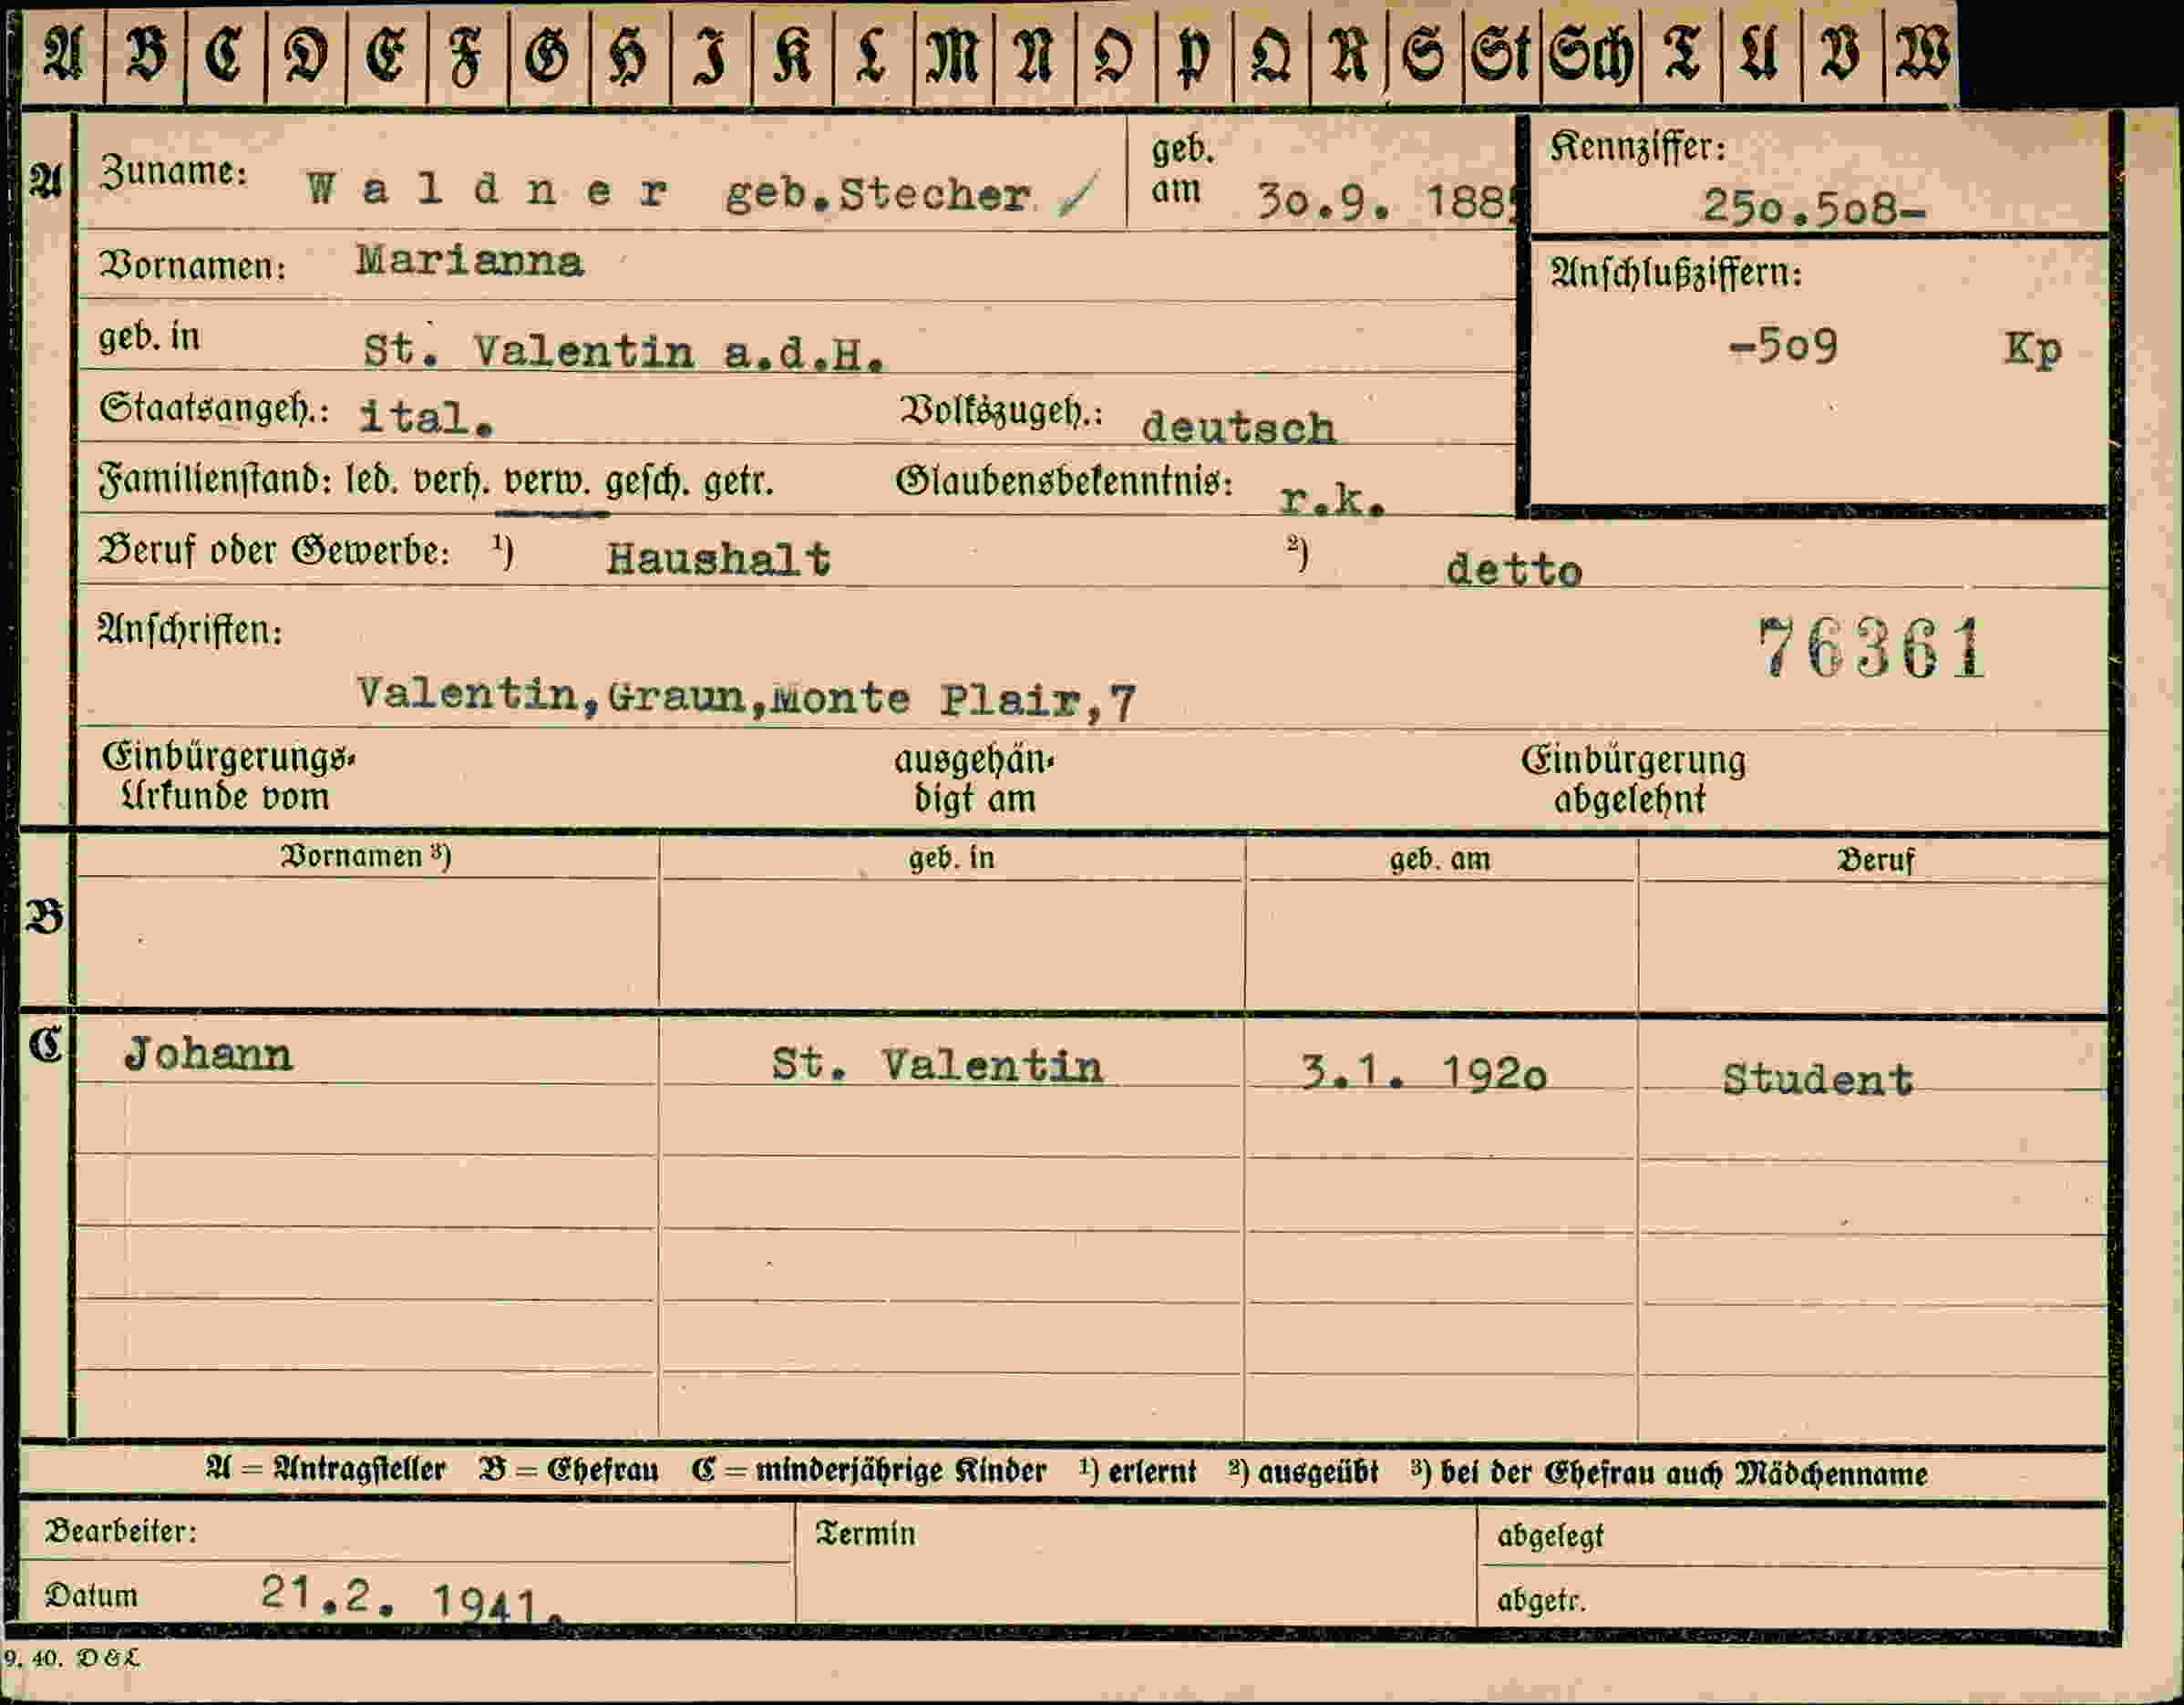 A B C D E F G H I K L M N O P Q R S St Sch T U V W
A Zuname: Waldner geb.Stecher geb. am 30.9. 188 Kennziffer: 250.508-
Vornamen: Marianna
Anschlußziffern:
geb. in St. Valentin a.d.H. -509 Kp
Staatsangeh.: ital. Volkszugeh.: deutsch
Familienstand: led. verh. verw. gesch. getr. Glaubensbekenntnis: r.k.
Beruf oder Gewerbe: ¹) Haushalt ²) detto
Anschriften: 76361
Valentin,Graun,Monte Plair,7
Einbürgerungs- ausgehän- Einbürgerung
Urkunde vom digt am abgelehnt
Vornamen ³) geb. in geb. am Beruf
B
C Johann St. Valentin 3.1. 1920 Student
A = Antragsteller B = Ehefrau C = minderjährige Kinder ¹) erlernt ²) ausgeübt ³) bei der Ehefrau auch Mädchenname
Bearbeiter: Termin abgelegt
Datum 21.2. 1941. abgetr.
9. 40. D & L